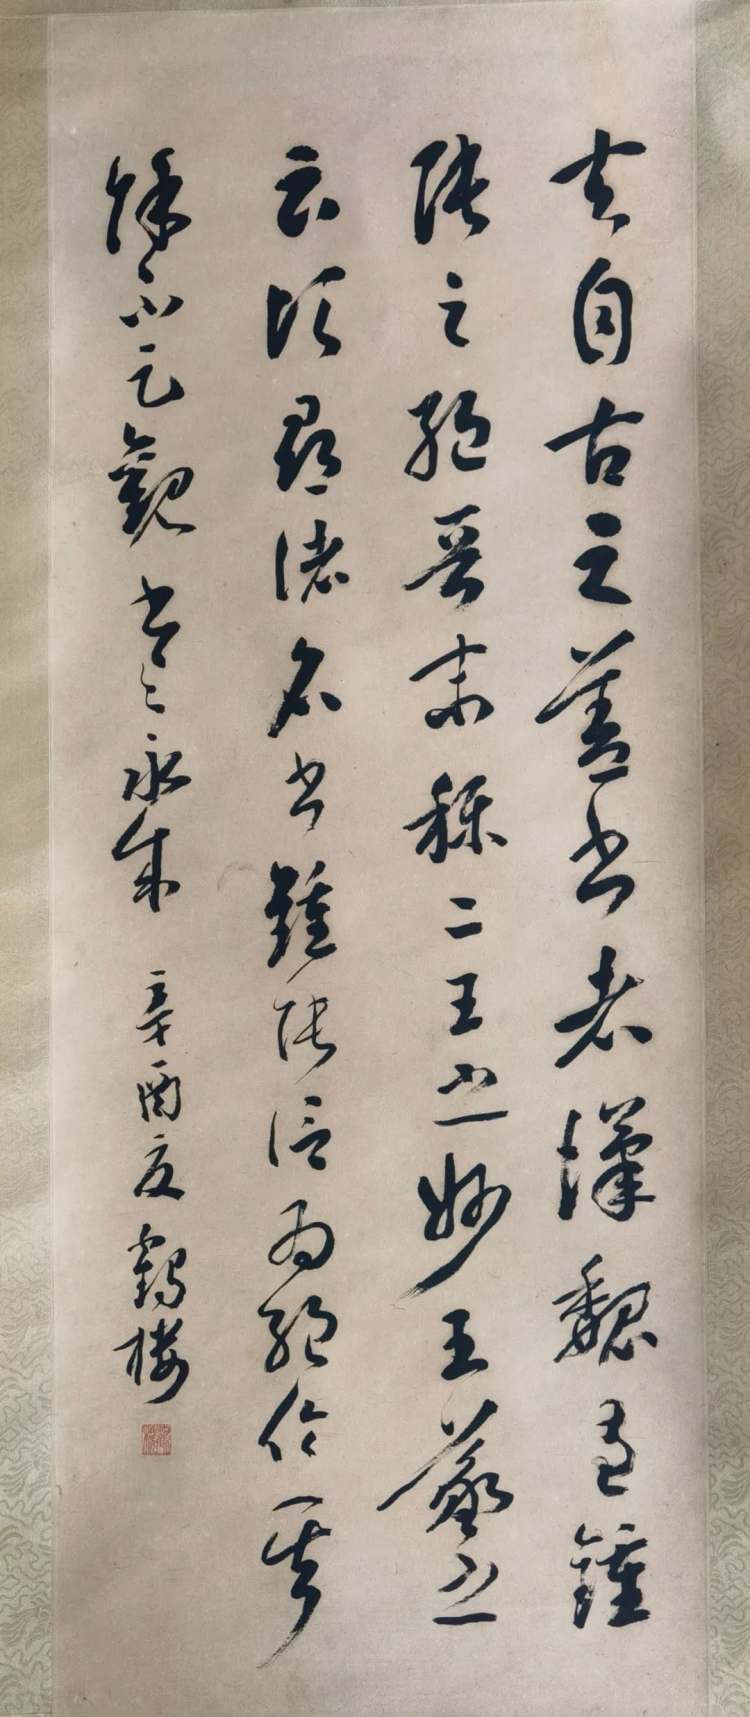 夫自古之善書者漢魏有鍾
張之絕晉末稱二王之妙王羲之
云頃尋諸名書鍾張信為絕倫其
餘不足觀 書之永成 辛酉夏 鶴樓